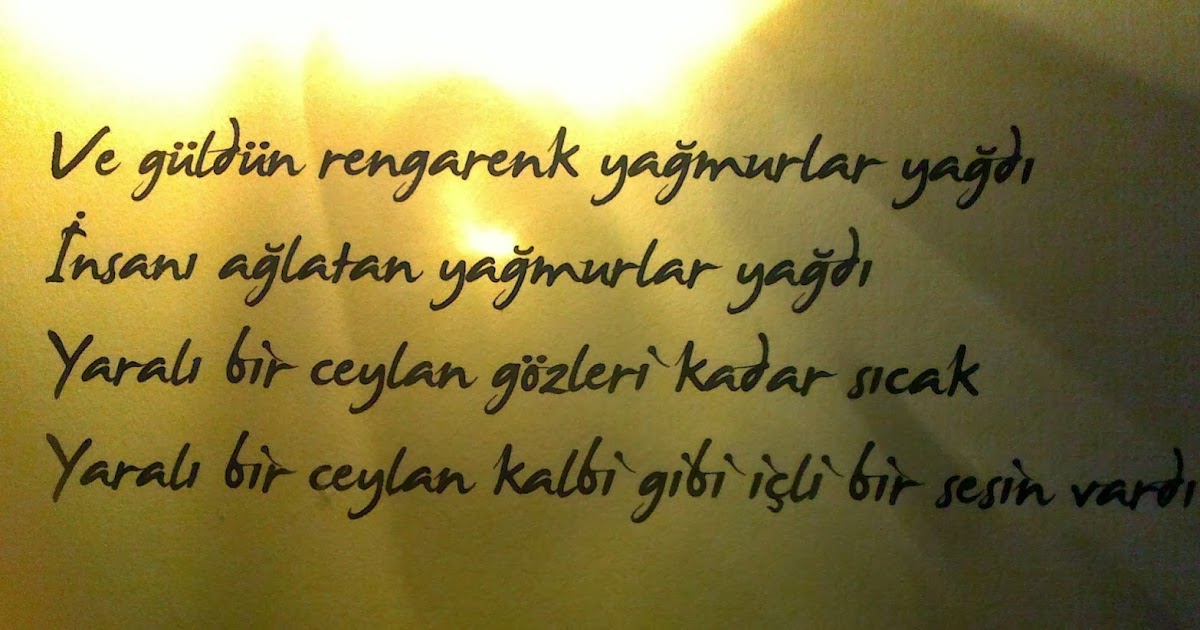 Ve güldün rengarenk yağmurlar yağdı
İnsanı ağlatan yağmurlar yağdı
Yaralı bir ceylan gözleri kadar sıcak
Yaralı bir ceylan kalbi gibi içli bir sesin vardı